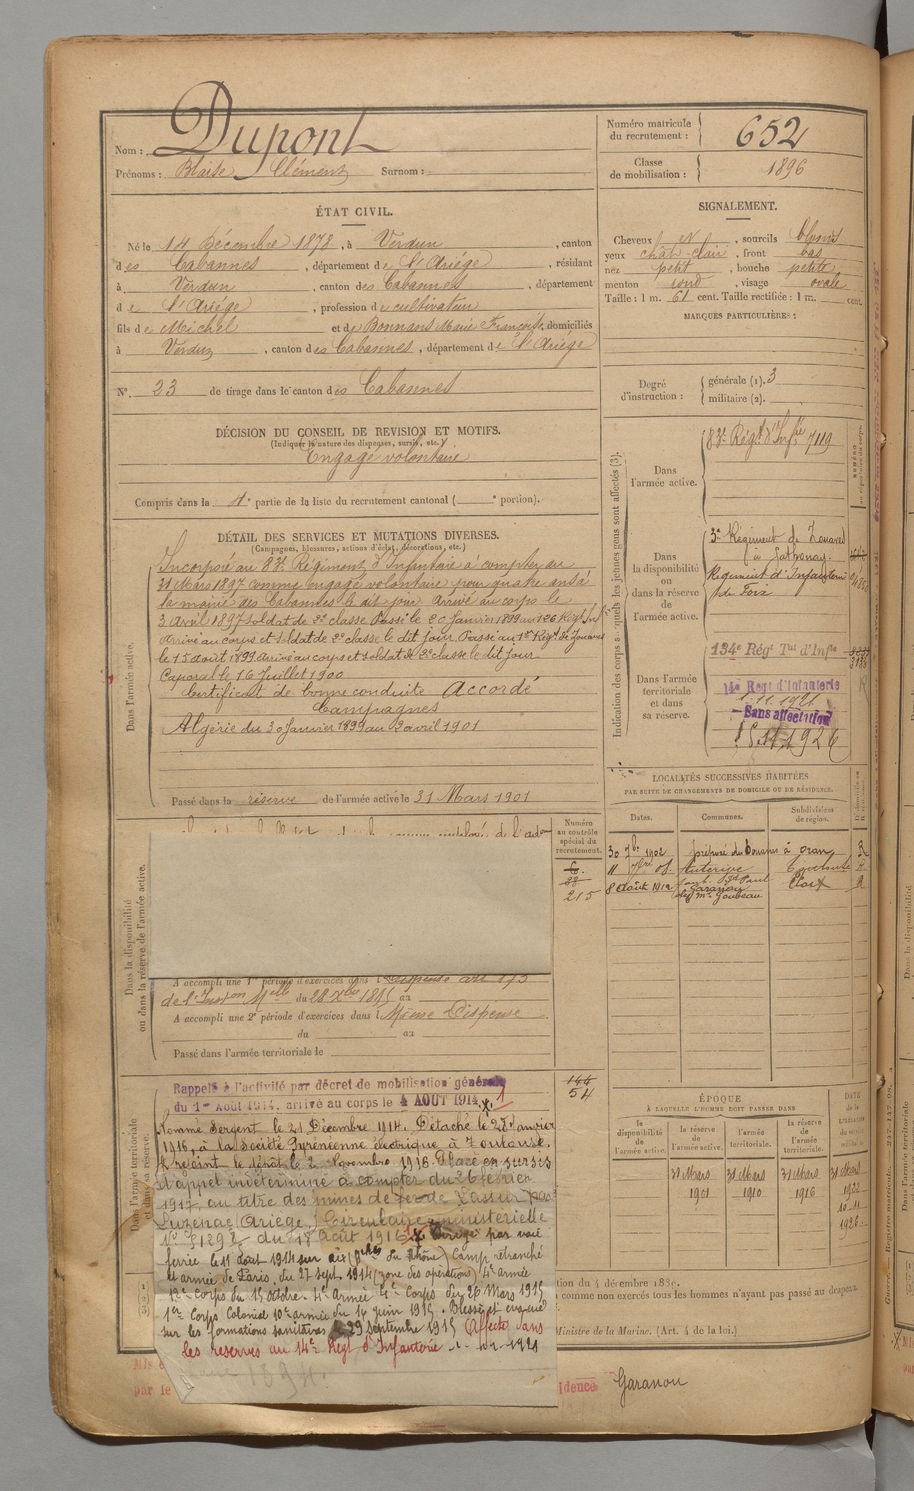 Nom : Dupont
Prénoms : Blaise Clément Surnom :
Numéro matricule
du recrutement : 652
Classe
de mobilisation : 1896
ÉTAT CIVIL.
Né le 14 Décembre 1878, à Verdun, canton
des Cabannes, département de l'Ariége, résidant
à Verdun, canton des Cabannes, département
de l'Ariége, profession de cultivateur
fils de Michel et de Bonnans Marie Françoise, domiciliés
à Verdun, canton des Cabannes, département de l'Ariége
N°. 23 de tirage dans le canton des Cabannes
DÉCISION DU CONSEIL DE REVISION ET MOTIFS.
(Indiquer la nature des dispenses, sursis, etc.)
Engagé volontaire
Compris dans la 4e partie de la liste du recrutement cantonal ( e portion).
DÉTAIL DES SERVICES ET MUTATIONS DIVERSES.
(Campagnes, blessures, actions d'éclat, décorations, etc.)
Dans l'armée active.
Incorporé au 83e Régiment d'Infanterie à compter du
31 Mars 1897 comme engagé volontaire pour quatre ans à
la mairie des Cabannes le dit jour. Arrivé au corps le
3 Avril 1897 soldat de 2e classe. Passé le 20 Janvier 1899 au 126 Régt Infie
Arrivé au corps et soldat de 2e classe le dit jour. Passé au 1er Régt de Zouaves
le 15 août 1899 arrivé au corps et soldat de 2e classe le dit jour
Caporal le 16 Juillet 1900
Certificat de bonne conduite Accordé
Campagnes
Algérie du 30 Janvier 1899 au 9 avril 1901
Passé dans la réserve de l'armée active le 31 Mars 1901
SIGNALEMENT.
Cheveux, sourcils blonds
yeux chât. clair, front bas
nez petit, bouche petite
menton rond, visage ovale
Taille : 1 m. 61 cent. Taille rectifiée : 1 m. cent.
MARQUES PARTICULIÈRES :
Degré
d'instruction :
générale (1). 3
militaire (2).
Indication des corps auxquels les jeunes gens sont affectés (3).
Dans
l'armée active.
83e Régt d'Infie 7119
Dans
la disponibilité
ou
dans la réserve
de
l'armée active.
3e Régiment de Zouaves
à Sathonay.
Régiment d'Infanterie
de Foix
Dans l'armée
territoriale
et dans
sa réserve.
134e Régt Tal d'Infie
14e Regt d'Infanterie
1.11.1921
Sans affectation
LOCALITÉS SUCCESSIVES HABITÉES
PAR SUITE DE CHANGEMENTS DE DOMICILE OU DE RÉSIDENCE.
Dates. Communes. Subdivisions
de région.
30 7bre 1902 préposé des Douanes à Oran R
Auterive Toulouse R
8 Août 1912 Garanou Foix R
Dans la disponibilité
ou dans la réserve de l'armée active.
Numéro
au contrôle
spécial du
recrutement.
215
A accompli une 1re période d'exercices dans l
de l'Inston Melle du 28 Xbre 1895 au
A accompli une 2e période d'exercices dans l Même Dispense
du au
Passé dans l'armée territoriale le
144
54
Dans l'armée territoriale
et dans sa réserve.
Rappelé à l'activité par décret de mobilisation générale
du 1er Août 1914, arrivé au corps le 4 AOUT 1914. 1
Nommé Sergent le 21 Décembre 1914. Détaché le 25 Janvier
1916, à la Société Pyrénéenne électrique à Toulouse.
A rejoint le dépôt le 2 Novembre 1916. Placé en sursis
d'appel indéterminé à compter du 26 février
1917, au titre des mines de Lassur par
Luzenac (Ariège) Circulaire ministerielle
du 18 Août 1916. Dirigé par voie
ferrée le 11 août 1914 sur Aix (Bches du Rhône) Camp retranché
et armée de Paris, du 27 sept. 1914 (zone des opérations) 4e armée
corps du 15 octobre. 4e Armée 4e Corps du 26 Mars 1915
1er Corps Colonial 10e armée du 14 juin 1915. Blessé et évacué
sur les formations sanitaires le 29 Septembre 1915 Affecté dans
les réserves au 14e Régt d'Infanterie
ÉPOQUE
À LAQUELLE L'HOMME DOIT PASSER DANS
la
disponibilité
de
l'armée active.
la réserve
de
l'armée active.
l'armée
territoriale.
la réserve
de
l'armée
territoriale.
31 Mars 31 Mars 31 Mars 31 Mars
1901 1910 1916 1922
10-11
1926
tion du 4 décembre 1889.
comme non exercés tous les hommes n'ayant pas passé au drapeau
Ministre de la Marine. (Art. 4 de la loi.)
par le
idence Garanou